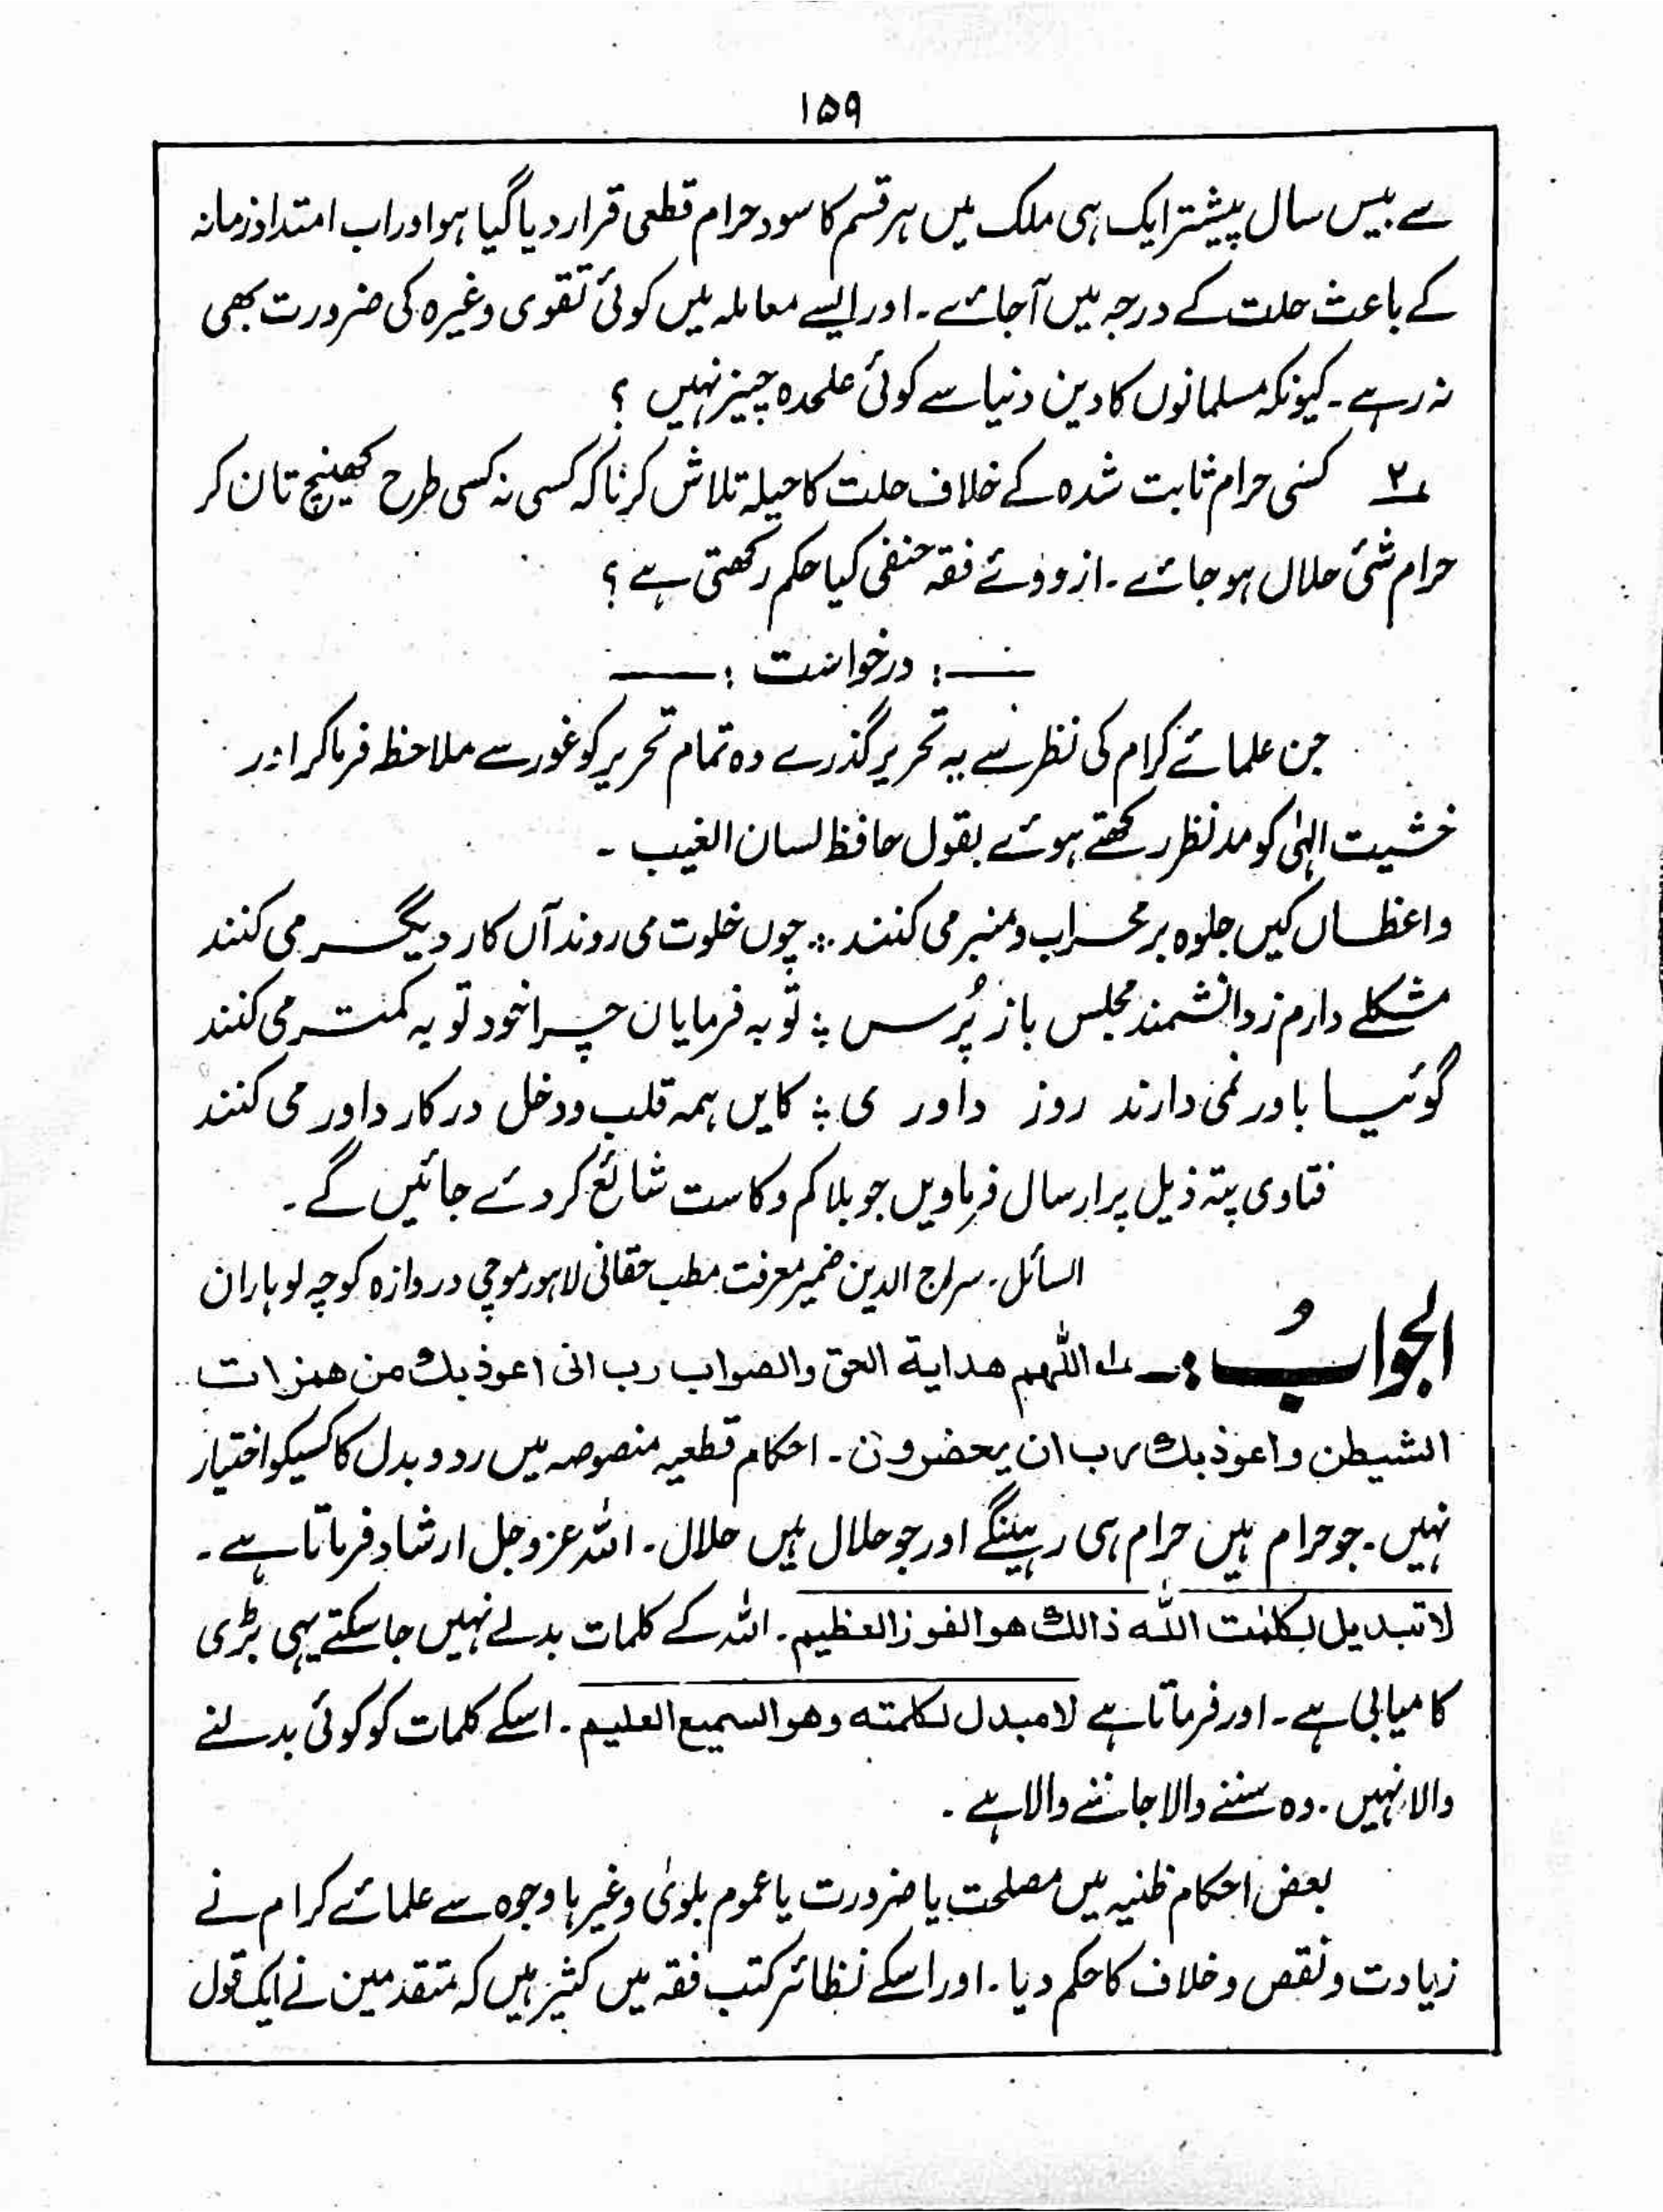 ۱۵۹
سے بیس سال پیشتر ایک ہی ملک میں ہر قسم کا سود حرام قطعی قرار دیا گیا ہو اور اب امتداد زمانہ
کے باعث حلت کے درجہ میں آجائے۔ اور ایسے معاملہ میں کوئی تقوی وغیرہ کی ضرورت بھی
نہ رہے۔ کیونکہ مسلمانوں کا دین دنیا سے کوئی علحدہ چیز نہیں ؟
۲؎ کسی حرام ثابت شدہ کے خلاف حلت کا حیلہ تلاش کرنا کہ کسی نہ کسی طرح کھینچ تان کر
حرام شئی حلال ہو جائے۔ از روئے فقہ حنفی کیا حکم رکھتی ہے ؟
ـــ: درخواست :ـــ
جن علمائے کرام کی نظر سے یہ تحریر گذرے وہ تمام تحریر کو غور سے ملاحظہ فرما کر اور
خشیت الہٰی کو مد نظر رکھتے ہوئے بقول حافظ لسان الغیب ۔
واعظاں کیں جلوہ بر محراب و منبر می کنند ؞ چوں خلوت می روند آں کار دیگر می کنند
مشکلے دارم ز دانشمند مجلس باز پُرس ؞ توبہ فرمایان چرا خود توبہ کمتر می کنند
گوئیا باور نمی دارند روز داوری ؞ کایں ہمہ قلب ودخل در کار داور می کنند
فتاوی پتہ ذیل پر ارسال فرماویں جو بلا کم و کاست شائع کر دئے جائیں گے ۔
السائل ۔ سراج الدین ضمیر معرفت مطب حقانی لاہور موچی دروازہ کوچہ لوہاران
الجوابُ :ـ ۱؎ اللّٰھم ھدایة الحق والصواب رب انی اعوذ بك من ھمزات
الشیطن واعوذ بك رب ان یحضرون ۔ احکام قطعیہ منصوصہ میں رد و بدل کا کسیکو اختیار
نہیں۔ جو حرام ہیں حرام ہی رہینگے اور جو حلال ہیں حلال۔ اللہ عز وجل ارشاد فرماتا ہے ۔
لا تبدیل لکلمٰت اللّٰہ ذالك ھو الفوز العظیم ۔ اللہ کے کلمات بدلے نہیں جاسکتے یہی بڑی
کامیابی ہے ۔ اور فرماتا ہے لا مبدل لکلمتہ وھو السمیع العلیم ۔ اسکے کلمات کو کوئی بدلنے
والا نہیں ۔ وہ سننے والا جاننے والا ہے ۔
بعض احکام ظنیہ میں مصلحت یا ضرورت یا عموم بلوٰی وغیرہا وجوہ سے علمائے کرام نے
زیادت و نقص و خلاف کا حکم دیا ۔ اور اسکے نظائر کتب فقہ میں کثیر ہیں کہ متقدمین نے ایک قول